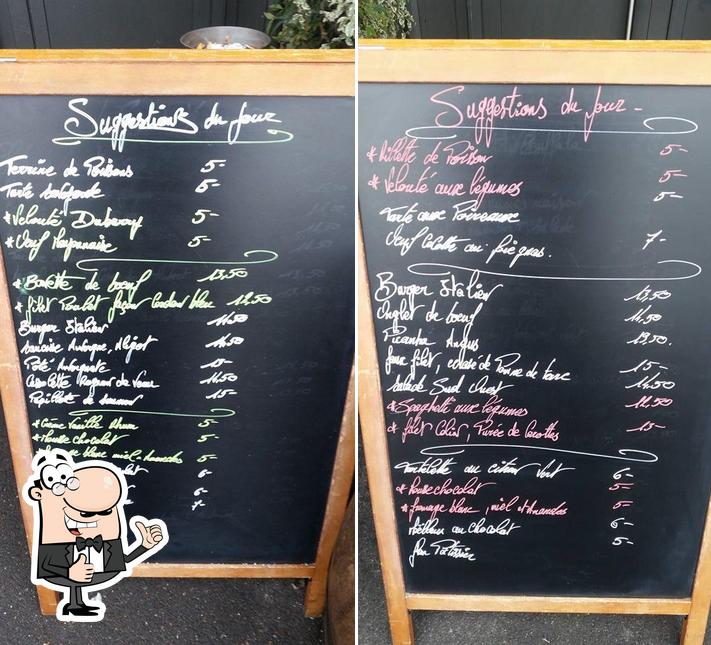 Suggestions du jour
Terrine de Poissons 5-
Tarte 5-
* Velouté Dubarry 5-
* Oeuf Mayonnaise 5-
* Bavette de boeuf 13,50
* filet Poulet façon Cordon bleu 12,50
Burger Italien 14,50
Saucisse Auvergne, Aligot 14,50
Poté Auvergnate 15-
Cassolette Rognon de Veau 14,50
Papillote de saumon 15-
* Crème Vanille Rhum 5-
* Mousse chocolat 5-
blanc miel Amandes 5-
6-
6-
7-
Suggestions du Jour -
* Rillette de Poisson 5-
* Velouté aux légumes 5-
Tarte aux Poireaux 5-
Oeuf Cocotte au foie gras. 7-
Burger Italien 13,50
Onglet de boeuf 14,50
Picanha Angus 19,50.
faux filet, écrasé de Pomme de terre 15-
Salade Sud Ouest 14,50
* Spaghetti aux légumes 12,50
* filet Colin, Purée de Carottes 15-
Tartelette au citron Vert 6-
* Mousse chocolat 5-
* fromage blanc, miel et Amandes 5-
Moelleux au chocolat 6-
flan Pâtissier 5-